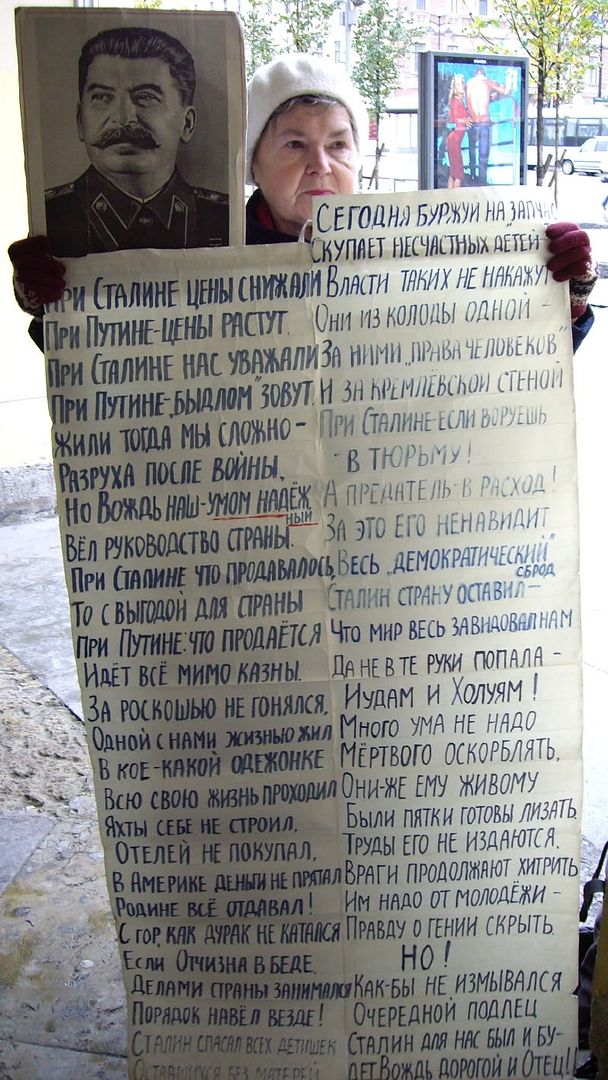 При Сталине цены снижали
При Путине-цены растут.
При Сталине нас уважали
При Путине-„быдлом" зовут.
Жили тогда мы сложно-
Разруха после войны.
Но Вождь наш-умом надёж
ный
Вёл руководство страны.
При Сталине что продавалось,
То с выгодой для страны
При Путине: что продаётся
Идёт всё мимо казны.
За роскошью не гонялся,
Одной с нами жизнью жил
В кое-какой одежонке
Всю свою жизнь проходил
Яхты себе не строил,
Отелей не покупал,
В Америке деньги не прятал
Родине всё отдавал!
С гор, как дурак не катался
Если Отчизна в беде.
Делами страны занимался
Порядок навёл везде!
Сталин спасал всех детишек
Оставшихся без матерей
Сегодня буржуй на „запчас
Скупает несчастных детей
Власти таких не накажут
Они из колоды одной-
За ними „права человеков"
И за кремлёвской стеной
При Сталине-если воруешь
-в тюрьму!
А предатель-в расход!
За это его ненавидит
Весь „демократический"
сброд
Сталин страну оставил-
Что мир весь завидовал нам
Да не в те руки попала-
Иудам и Холуям!
Много ума не надо
Мёртвого оскорблять,
Они-же ему живому
Были пятки готовы лизать.
Труды его не издаются.
Враги продолжают хитрить
Им надо от молодёжи-
Правду о гении скрыть.
НО!
Как-бы не измывался
Очередной подлец
Сталин для нас был и бу-
дет Вождь дорогой и Отец!!